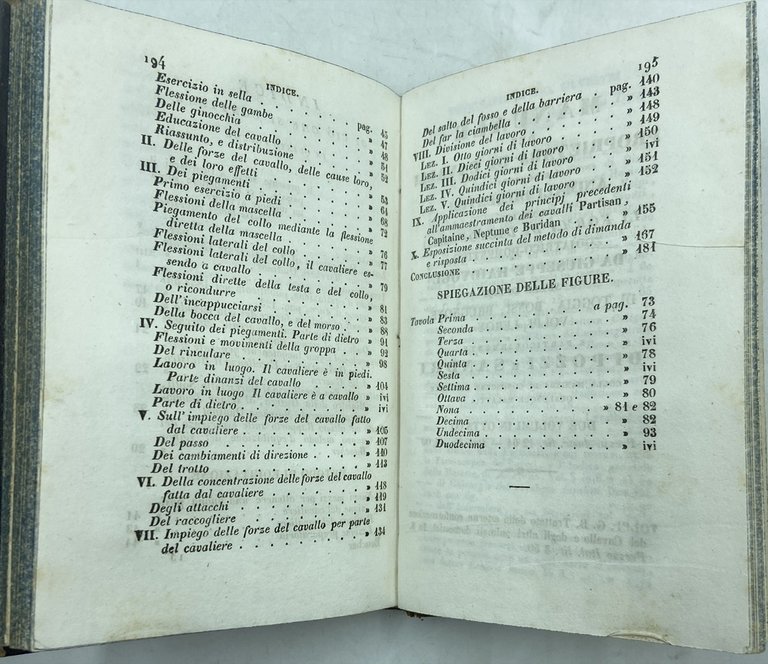 194
INDICE.
Esercizio in sella . . . . . pag. 45
Flessione delle gambe . . . . . » 47
Delle ginocchia . . . . . » 48
Educazione del cavallo . . . . . » 51
Riassunto, e distribuzione . . . . . » 52
II. Delle forze del cavallo, delle cause loro,
e dei loro effetti . . . . . » 53
III. Dei piegamenti . . . . . » 64
Primo esercizio a piedi . . . . . » 68
Flessioni della mascella . . . . . » 72
Piegamento del collo mediante la flessione
diretta della mascella . . . . . » 76
Flessioni laterali del collo . . . . . » 77
Flessioni laterali del collo, il cavaliere es-
sendo a cavallo . . . . . » 79
Flessioni dirette della testa e del collo,
o ricondurre . . . . . » 81
Dell'incappucciarsi . . . . . » 83
Della bocca del cavallo, e del morso . » 88
IV. Seguito dei piegamenti. Parte di dietro » 91
Flessioni e movimenti della groppa . » 92
Del rinculare . . . . . » 98
Lavoro in luogo. Il cavaliere è in piedi.
Parte dinanzi del cavallo . . . . . » 104
Lavoro in luogo Il cavaliere è a cavallo » ivi
Parte di dietro . . . . . » ivi
V. Sull'impiego delle forze del cavallo fatto
dal cavaliere . . . . . » 105
Del passo . . . . . » 107
Dei cambiamenti di direzione . . . . . » 110
Del trotto . . . . . » 113
VI. Della concentrazione delle forze del cavallo
fatta dal cavaliere . . . . . » 118
Degli attacchi . . . . . » 119
Del raccogliere . . . . . » 131
VII. Impiego delle forze del cavallo per parte
del cavaliere . . . . . » 134
195
INDICE.
Del salto del fosso e della barriera . pag. 140
Del far la ciambella . . . . . » 143
VIII. Divisione del lavoro . . . . . » 148
Lez. I. Otto giorni di lavoro . . . . . » 149
Lez. II. Dieci giorni di lavoro . . . . . » 150
Lez. III. Dodici giorni di lavoro . . . . . ivi
Lez. IV. Quindici giorni di lavoro . . . . . » 151
Lez. V. Quindici giorni di lavoro . . . . . » 152
IX. Applicazione dei principj precedenti
all'ammaestramento dei cavalli Partisan,
Capitaine, Neptune e Buridan . . . . . » 155
X. Esposizione succinta del metodo di dimanda
e risposta . . . . . » 167
CONCLUSIONE . . . . . » 181
SPIEGAZIONE DELLE FIGURE.
Tavola Prima . . . . . a pag. 73
Seconda . . . . . » 74
Terza . . . . . » 76
Quarta . . . . . » ivi
Quinta . . . . . » 78
Sesta . . . . . » ivi
Settima . . . . . » 79
Ottava . . . . . » 80
Nona . . . . . » 81 e 82
Decima . . . . . » 82
Undecima . . . . . » 93
Duodecima . . . . . » ivi